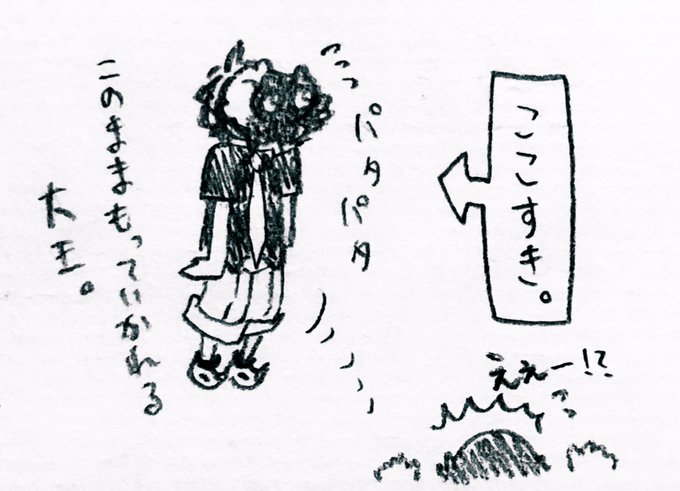 ここすき。
えぇー!?
パタパタ
このままもっていかれる
大王。